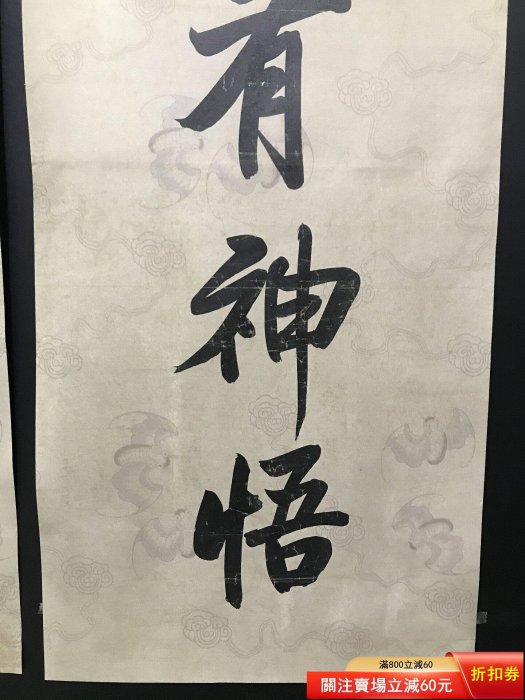 有
神
悟
滿800立減60
關注賣場立減60元
折扣券